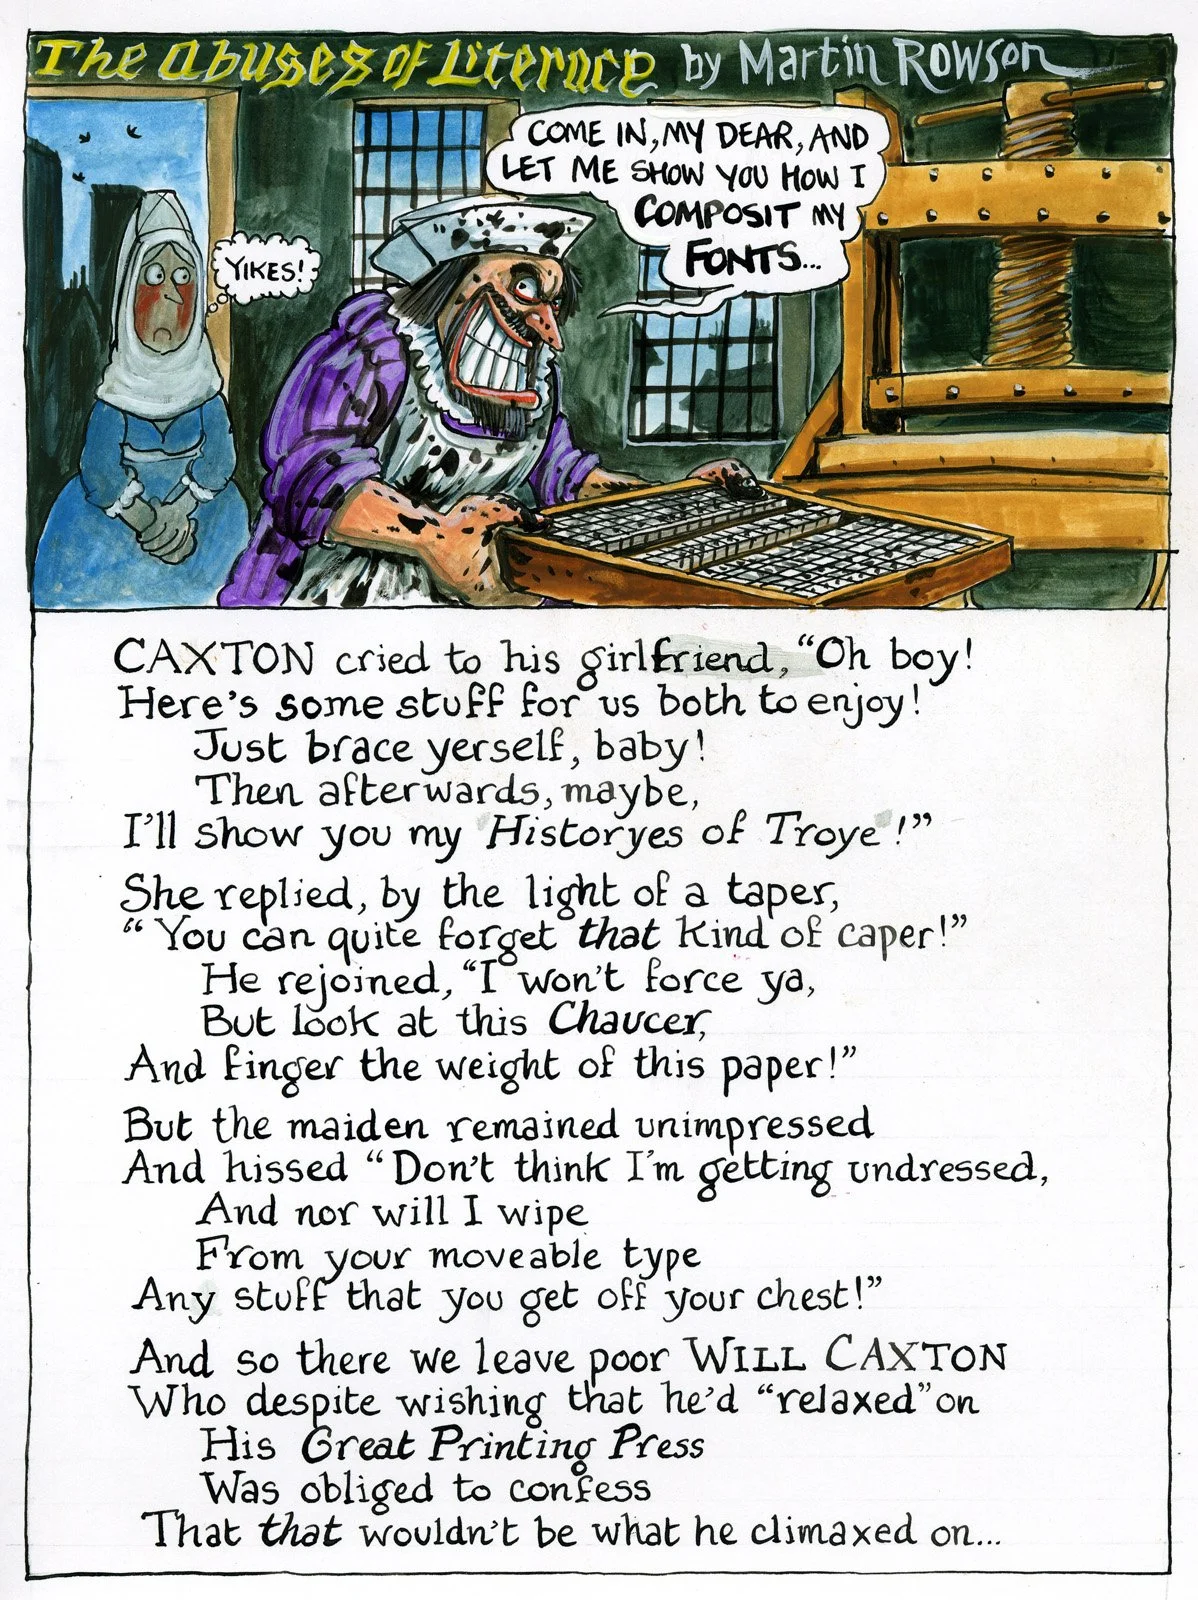 The Abuses of Literacy by Martin Rowson
COME IN, MY DEAR, AND
LET ME SHOW YOU HOW I
COMPOSIT MY
FONTS...
YIKES!
CAXTON cried to his girlfriend, “Oh boy!
Here's some stuff for us both to enjoy!
Just brace yerself, baby!
Then afterwards, maybe,
I'll show you my Historyes of Troye!”
She replied, by the light of a taper,
“You can quite forget that kind of caper!”
He rejoined, “I won't force ya,
But look at this Chaucer,
And finger the weight of this paper!”
But the maiden remained unimpressed
And hissed “Don't think I'm getting undressed,
And nor will I wipe
From your moveable type
Any stuff that you get off your chest!”
And so there we leave poor WILL CAXTON
Who despite wishing that he'd “relaxed” on
His Great Printing Press
Was obliged to confess
That that wouldn't be what he climaxed on...